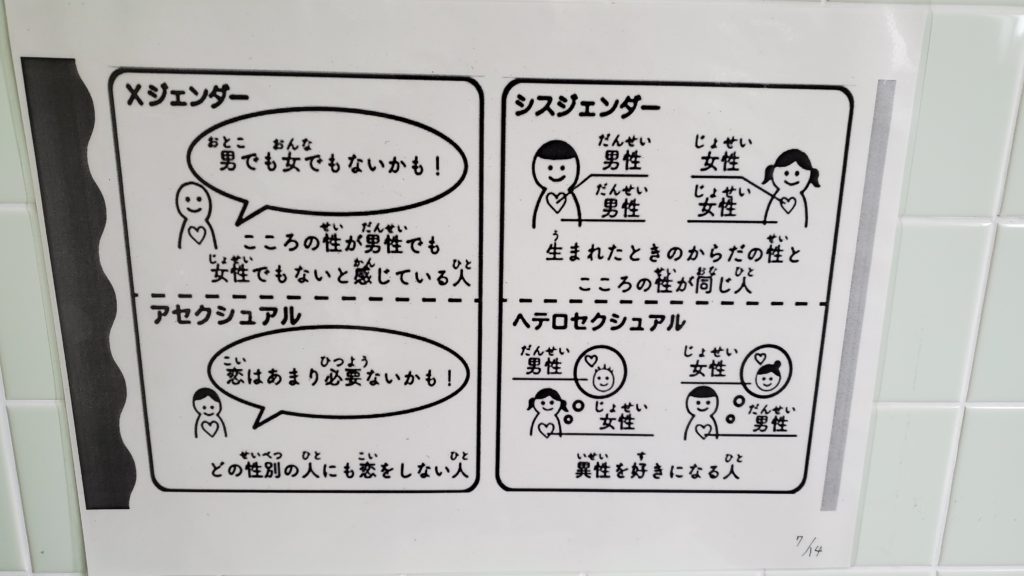 Xジェンダー
おとこ おんな
男でも女でもないかも！
せい だんせい
こころの性が男性でも
じょせい かん ひと
女性でもないと感じている人
アセクシュアル
こい ひつよう
恋はあまり必要ないかも！
せいべつ ひと こい ひと
どの性別の人にも恋をしない人
シスジェンダー
だんせい
男性
だんせい
男性
じょせい
女性
じょせい
女性
う せい
生まれたときのからだの性と
せい おな ひと
こころの性が同じ人
ヘテロセクシュアル
だんせい
男性
じょせい
女性
じょせい
女性
だんせい
男性
いせい す ひと
異性を好きになる人
7/14